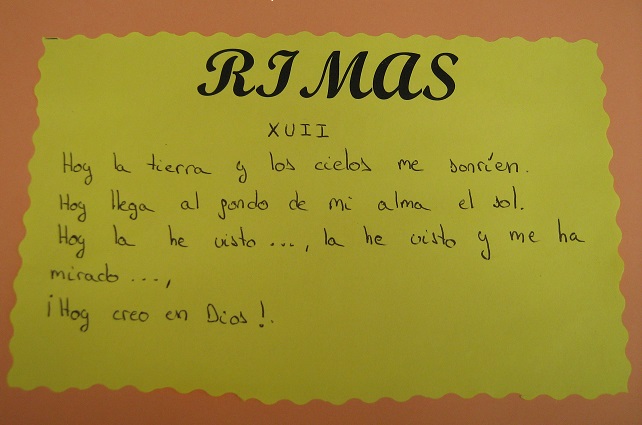 RIMAS
XVII
Hoy la tierra y los cielos me sonríen.
Hoy llega al fondo de mi alma el sol.
Hoy la he visto..., la he visto y me ha
mirado...,
¡Hoy creo en Dios!.